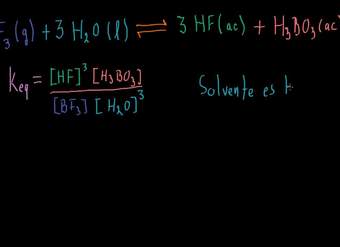 F₃(g) + 3 H₂O (l) ⇌ 3 HF(ac) + H₃BO₃(ac
Keq = [HF]³ [H₃BO₃] / [BF₃] [H₂O]³
Solvente es